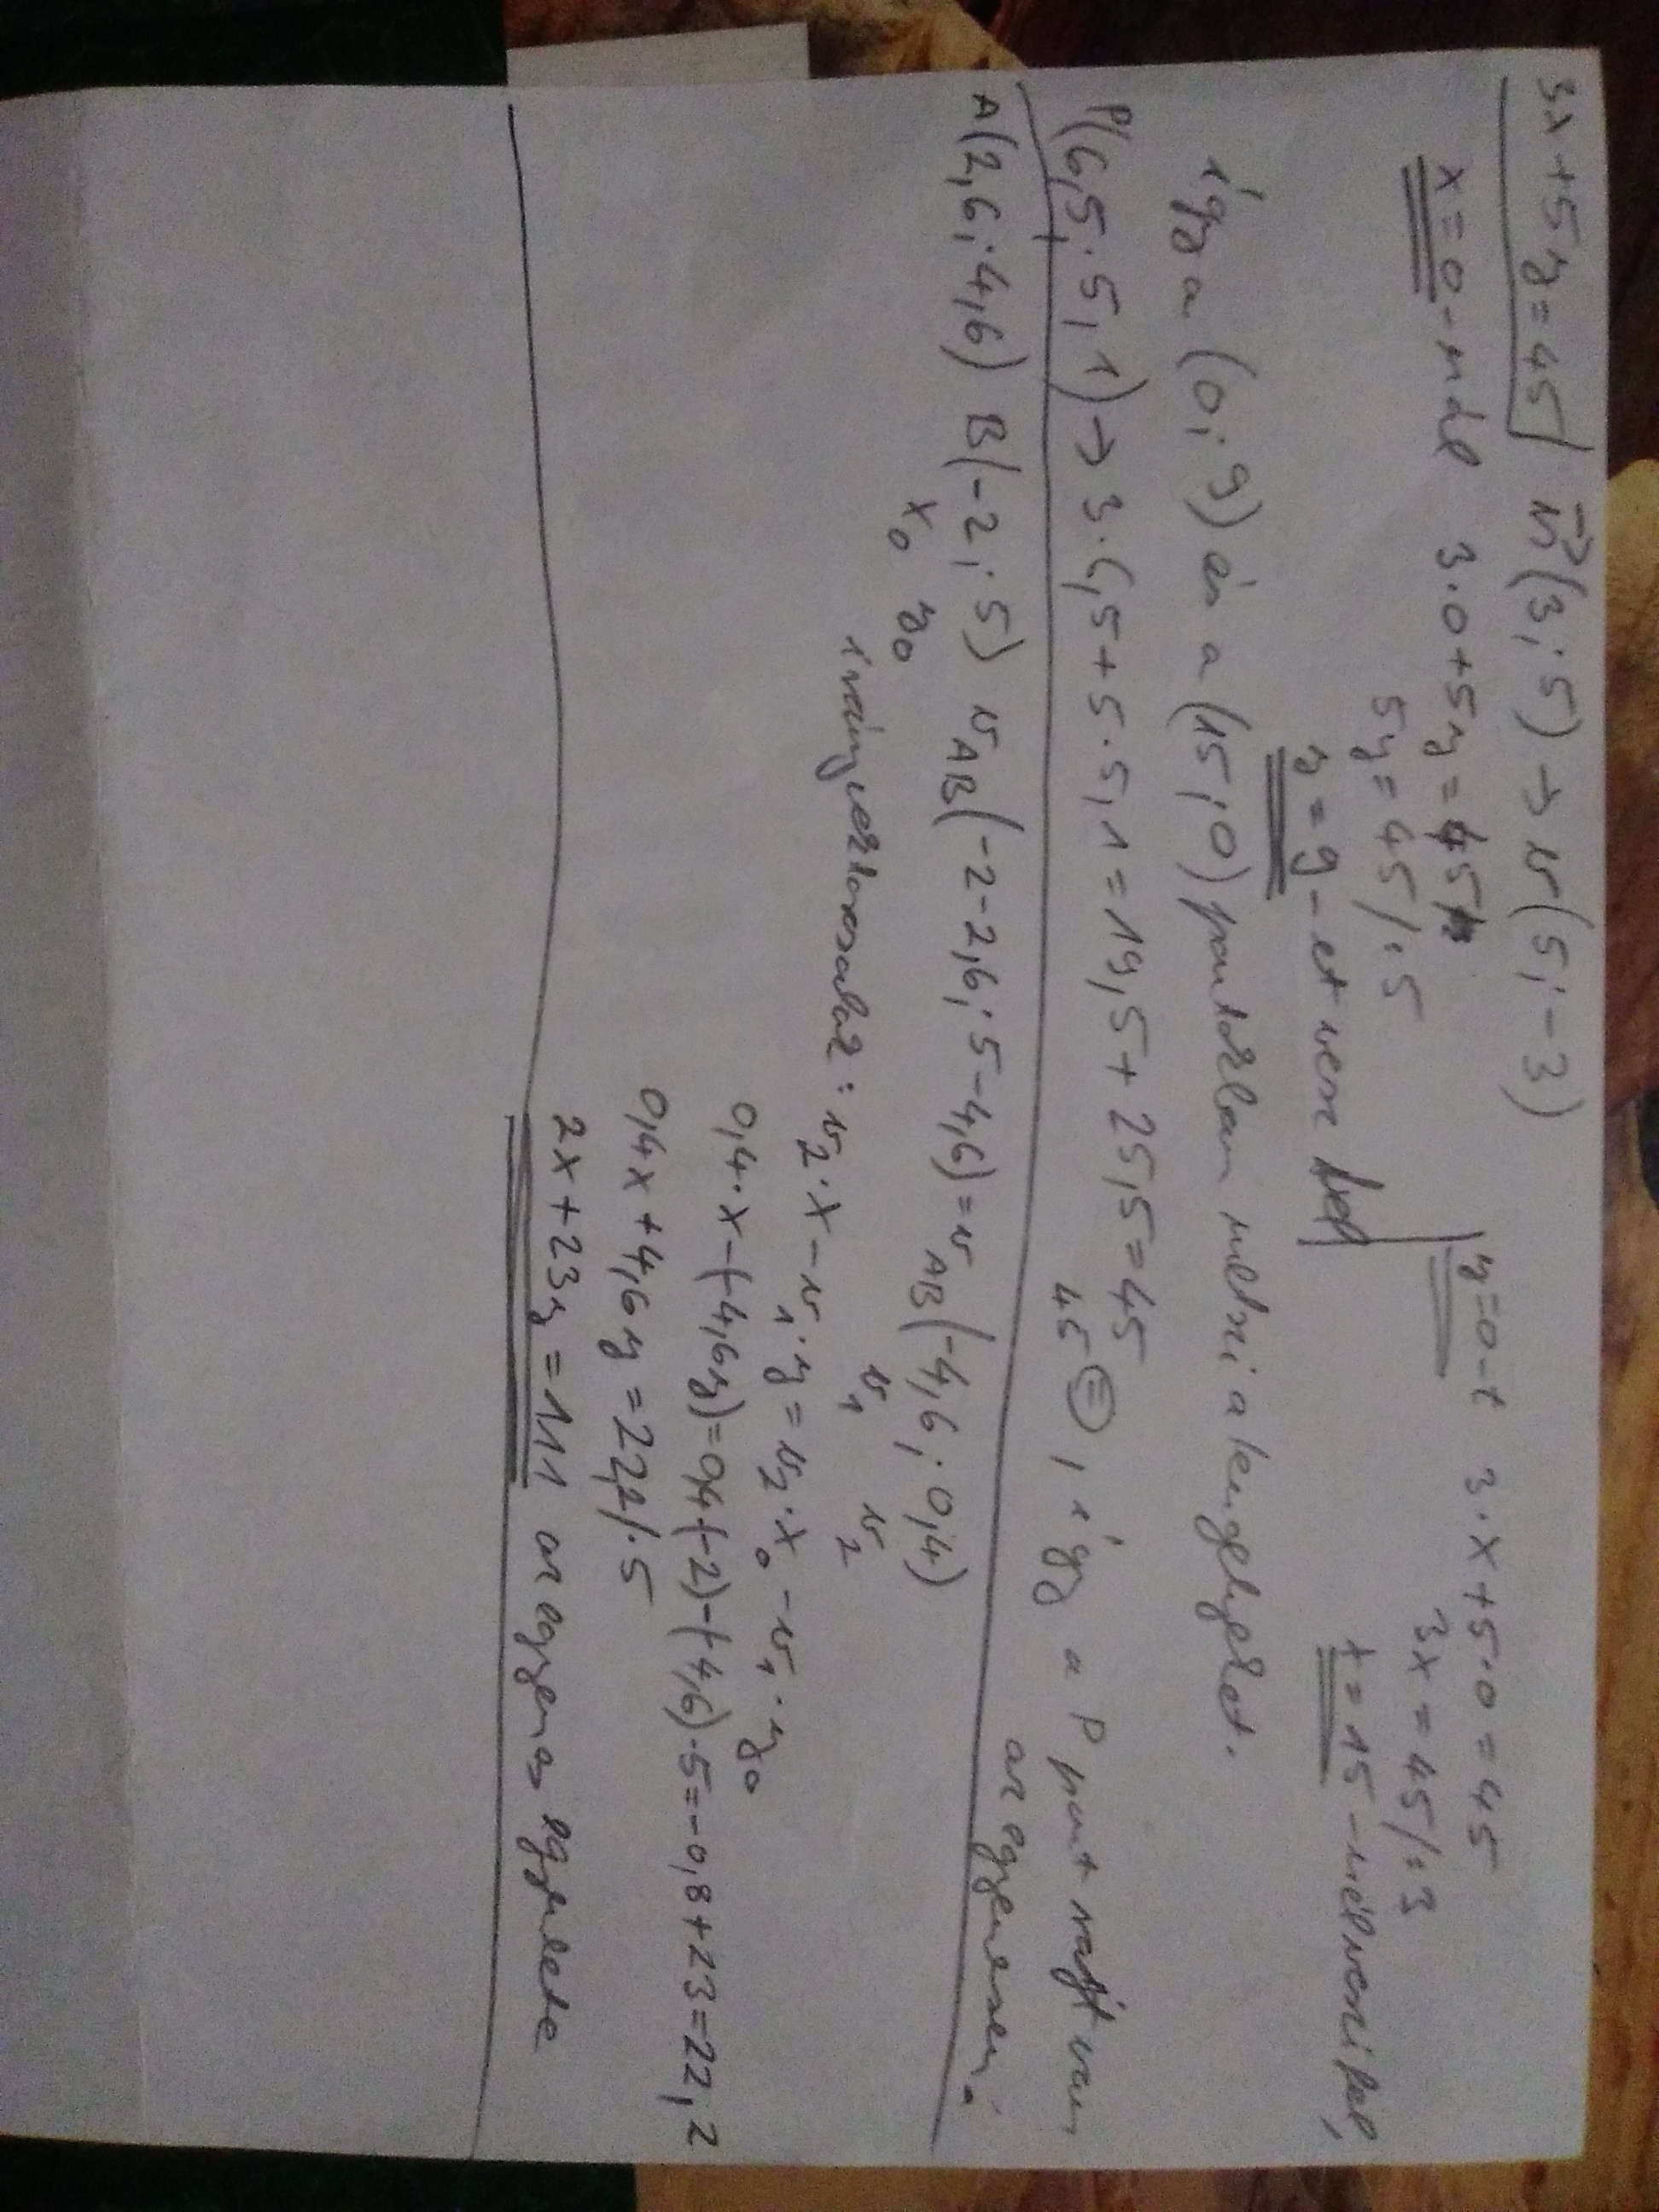 3x+5y=45 n→(3;5)→v(5;-3)
x=0-nál 3·0+5y=45 y=0-t 3·x+5·0=45
5y=45/:5 3x=45/:3
y=9-et vesz fel x=15-nél veszi fel,
így a (0;9) és a (15;0) pontokban metszi a tengelyeket.
P(6,5;5,1)→3·6,5+5·5,1=19,5+25,5=45
45=, így a P pont rajt van
az egyenesen.
A(2,6;4,6) B(-2;5) vAB(-2-2,6;5-4,6)=vAB(-4,6;0,4)
x0 y0 v1 v2
irányvektorosalak: v2·x-v1·y=v2·x0-v1·y0
0,4·x-(-4,6y)=0,4(-2)-(-4,6)·5=-0,8+23=22,2
0,4x+4,6y=22,2/·5
2x+23y=111 az egyenes egyenlete